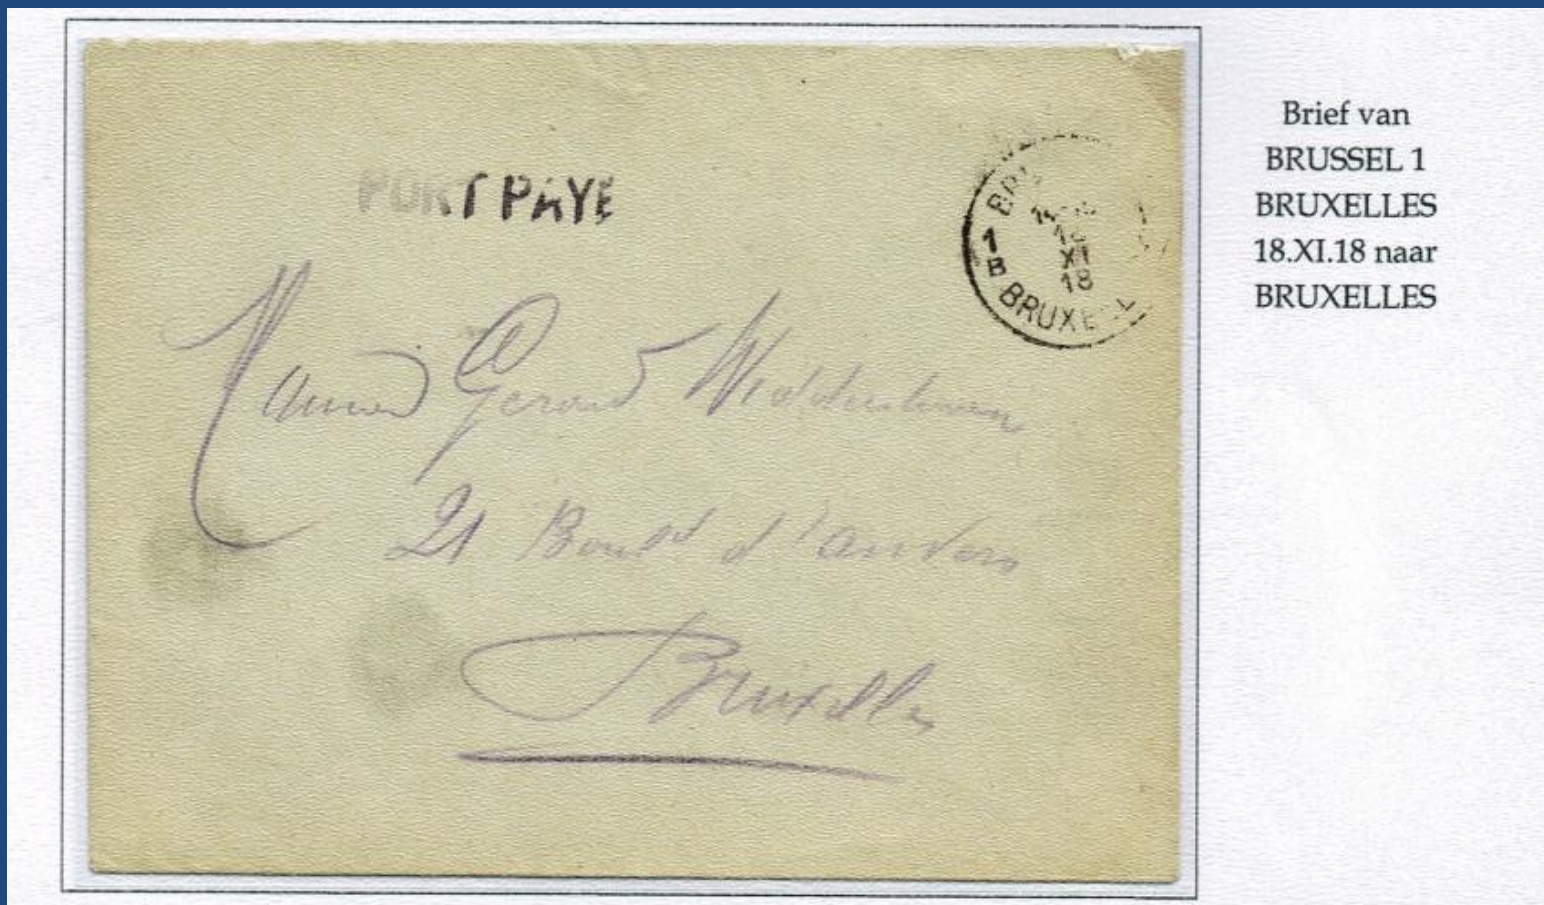 PORT PAYE
1
B
XI
18
BRUXELL
Gerard
21 Bould d'anvers
Bruxelles
Brief van
BRUSSEL 1
BRUXELLES
18.XI.18 naar
BRUXELLES